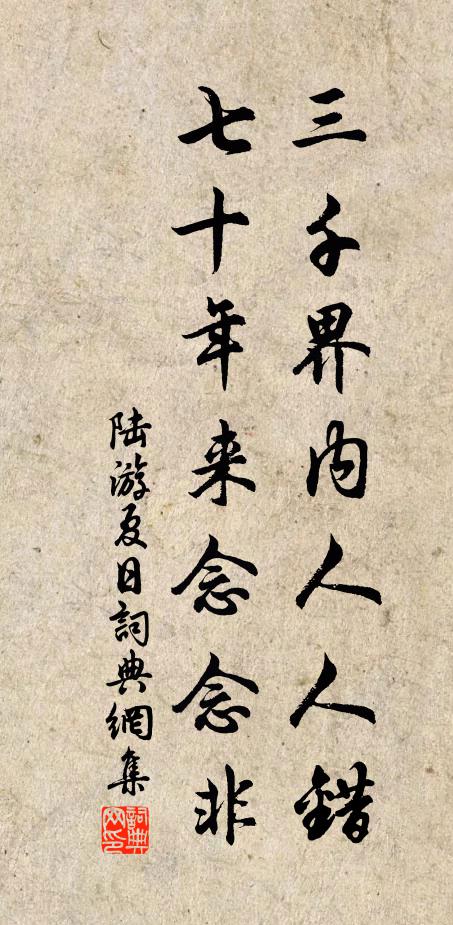 三千界内人人錯
七十年来念念非
陆游夏日詞典網集
詞典网印